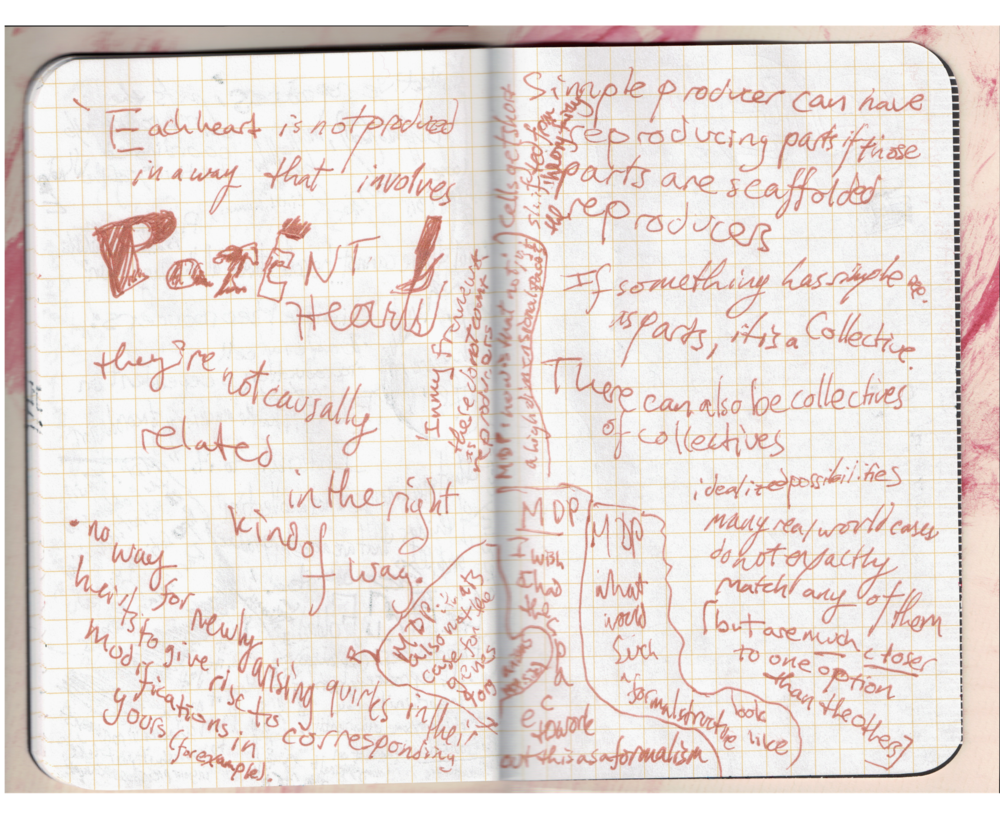 Each heart is not produced
in a way that involves
PaRENT
Hearts!
they're
not causally
related
in the right
kind of
way.
• no
way
for newly arising quirks in their
hearts to give rise to corresponding
modifications in
yours (for example).
In my framework
these do not count
as reproducers
MDP: also not it's
case for these
genes
MDP: how is that not in
a high dimensional space?
cells get short
shrifted from
wrong things
Simple producer can have
reproducing parts if those
parts are scaffolded
reproducers
If something has simple re.
as parts, it is a Collective.
There can also be collectives
of collectives
idealized possibilities
many real world cases
do not exactly
match any of them
[but are much closer
to one option
than the others]
MDP
wish
had
space
to work
out this as a formalism
MDP
what
would
such
a formal structure look
like